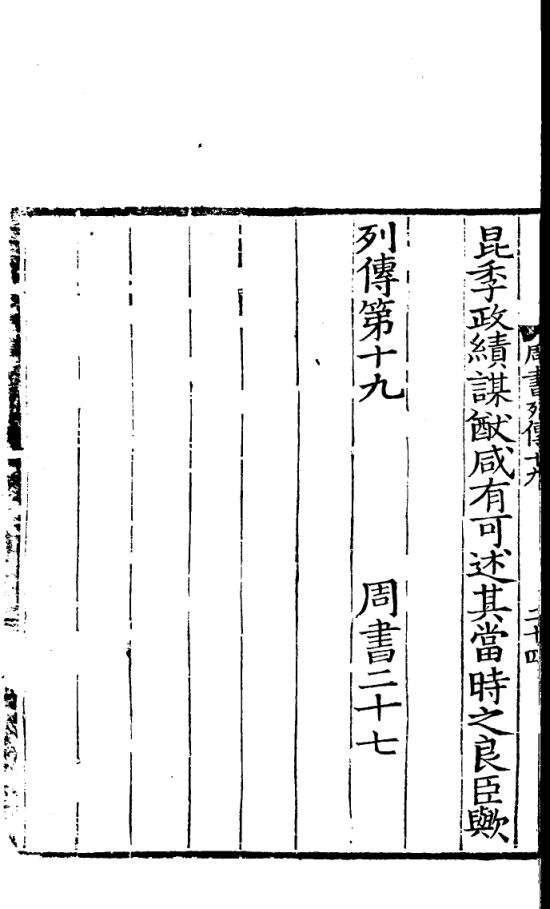 周書列傳十九 二十四
昆季政績謀猷咸有可述其當時之良臣歟
列傳第十九 周書二十七